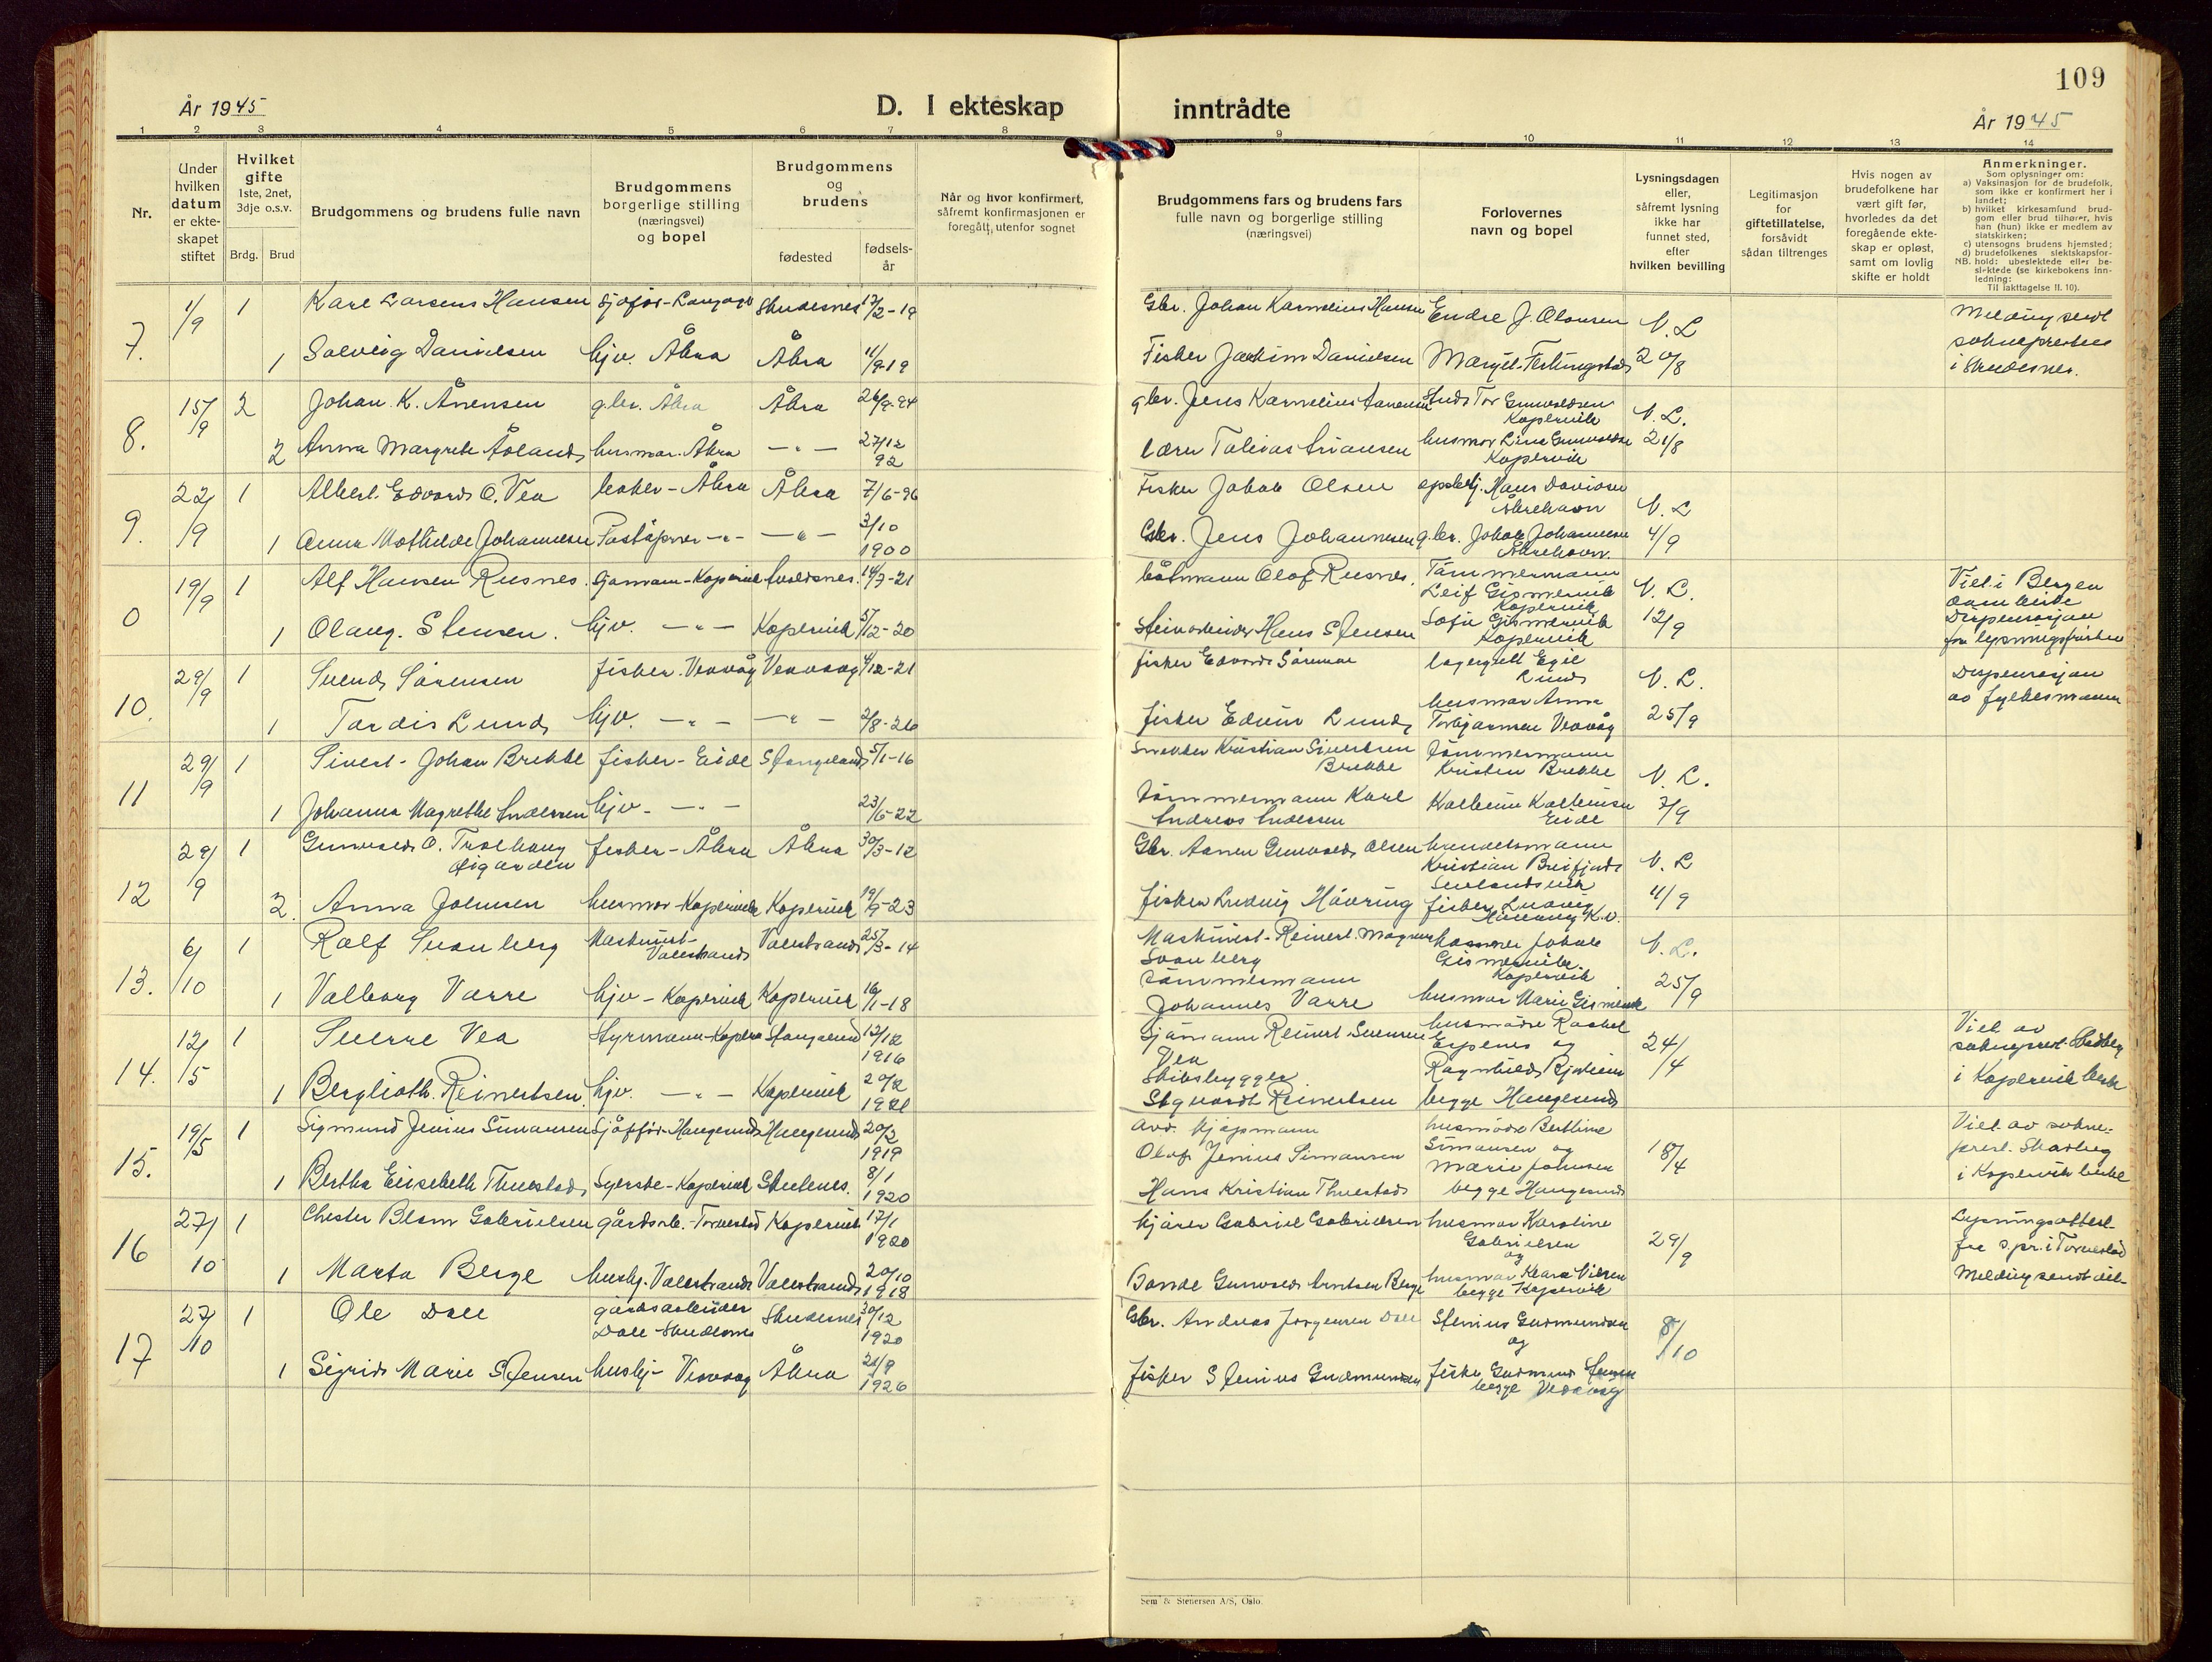 109
År 1945
D. I ekteskap inntrådte
År 1945
1 2 3 4 5 6 7 8 9 10 11 12 13 14
Nr.
Under hvilken datum er ekteskapet stiftet
Hvilket gifte
1ste, 2net, 3dje o.s.v.
Brdg. Brud
Brudgommens og brudens fulle navn
Brudgommens borgerlige stilling (næringsvei) og bopel
Brudgommens og brudens
fødested
fødselsår
Når og hvor konfirmert, såfremt konfirmasjonen er foregått, utenfor sognet
Brudgommens fars og brudens fars fulle navn og borgerlige stilling (næringsvei)
Forlovernes navn og bopel
Lysningsdagen eller, såfremt lysning ikke har funnet sted, efter hvilken bevilling
Legitimasjon for giftetillatelse, forsåvidt sådan tiltrenges
Hvis nogen av brudefolkene har vært gift før, hvorledes da det foregående ekteskap er opløst, samt om lovlig skifte er holdt
Anmerkninger.
Som oplysninger om:
a) Vaksinasjon for de brudefolk, som ikke er konfirmert her i landet;
b) hvilket kirkesamfund brudgom eller brud tilhører, hvis han (hun) ikke er medlem av statskirken;
c) utensogns brudens hjemsted;
d) brudefolkenes slektskapsforhold: ubeslektede eller beslektede (se kirkebokens innledning:
NB.
Til iakttagelse II. 10).
7. 1/9 1 Kare Larsens Hansen Sjøfør - Skudesnes 17/2-19 Gbr. Johan Kornelius Hansen Endre J. Olansen V. L Melding sendt
soknepresten
1 Solveig Danielsen hjv. Åkra Åkra 11/9-19 Fisker Joakim Danielsen 20/8 i Skudesnes.
8. 15/9 2 Johan K. Ånensen gbr. Åkra Åkra 26/9-94 gbr. Jens Kornelius Kopervik V. L.
2 Anna Margrete husmor. Åkra — " — 27/12 92 lærer Tobias husmor Kopervik 21/8
9. 22/9 1 Albert Edvard O. Vea Åkra Åkra 7/6-96 Fisker Jakob Olsen Hans Davidsen Åkrehavn V. L
1 Anna Mathilde Johannesen — " — — " — 3/10 1900 Gbr. Jens Johannesen gbr. Jakob Johannesen Åkrehavn. 4/9
0 19/9 1 Alf Hansen Rusnes. - Kopervik 14/7-21 båtmann Olaf Rusnes. Tømmermann Leif Gismervik Kopervik V. L. Viet i Bergen
domkirke
Dispensasjon
1 Olaug. Stensen. hjv. — " — Kopervik 5/12-20 Hans Stensen Sofie Gismervik Kopervik 12/9 fra lysningsfristen
10. 29/9 1 Svend Sørensen fisker. Veavåg Veavaag 4/12-21 fisker Edvard Sørensen Egil Lund V. L. Dispensasjon
av fylkesmann
1 Tordis Lund hjv. — " — — " — 2/8-26 fisker Edvin Lund husmor Anna Torbjørnsen Veavåg 25/9
11 29/9 1 Sivert - Johan Brekke fisker - Eide Stangeland 5/1-16 Snekker Kristian Sivertsen Brekke Tømmermann Kristen Brekke V. L.
1 Johanna Magrethe Andersen hjv - — " — 23/6-22 Tømmermann Karl Andreas Andersen Eide 7/9
12 29/9 1 Gunvald O. fisker - Åkra Åkra 30/3-12 Gbr. Aanen Gunvald Olsen handelsmann Kristian V. L
2. Anna Johnsen husmor - Kopervik Kopervik 19/9-23 fisker Ludvig Håvring fisker Ludvig K.v. 4/9
13. 6/10 1 Rolf Svanberg Maskinist - Valestrand Valestrand 25/3-14 Maskinist - Reinert. Magnus Svanberg Jakob Gismervik Kopervik V. L.
1 Valborg Varre hjv - Kopervik Kopervik 16/1-18 Tømmermann Johannes Varre husmor Marie Gismervik 25/9
14. 12/5 1 Sverre Vea Styrmann - Kopervik Stangeland 12/12 1916 Sjømann Reinert Vea husmødre Rakel Espenes og 24/4 Viet av
sokneprest Skadberg
1 Berglioth. Reinertsen hjv. — " — Kopervik 20/2 1921 Skibsbygger Sigvardt Reinertsen Ragnhild begge Haugesund i Kopervik kirke
15. 19/5 1 Sigmund Jenius Simonsen Sjåfør - Haugesund Haugesund 20/2 1919 Avd. kjøpmann Olaf Jenius Simonsen husmødre Berthine Simonsen og Marie Johnsen 18/4 Viet av sokne-
prest. Skadberg
1 Bertha Elisabeth Thuestad Syerske - Kopervik Skudenes. 8/1 1920 Hans Kristian Thuestad begge Haugesund i Kopervik kirke
16 27/10 1 Chester Blom Gabrielsen gårdsarb. - Torvestad Kopervik 17/1 1920 Gabriel Gabrielsen husmor Karoline Gabrielsen og 29/9 Lysningsattest
fra s.pr. i Torvestad
1 Marta Berge hushj. Valestrand Valestrand 20/10 1918 Bonde Gunvald Berge husmor Klara Nilsen begge Kopervik Melding sendt dit.
17 27/10 1 Ole Dale gårdsarbeider Dale - Skudenes Skudesnes 30/12 1920 Gbr. Andreas Jørgensen Dale Stenius Gudmundsen og 8/10
1 Sigrid Marie Stensen hushj - Veavaag Åkra 21/9 1926 fisker Stenius Gudmundsen fisker Gudmund begge Vedavåg
Sem & Stenersen A/S, Oslo.